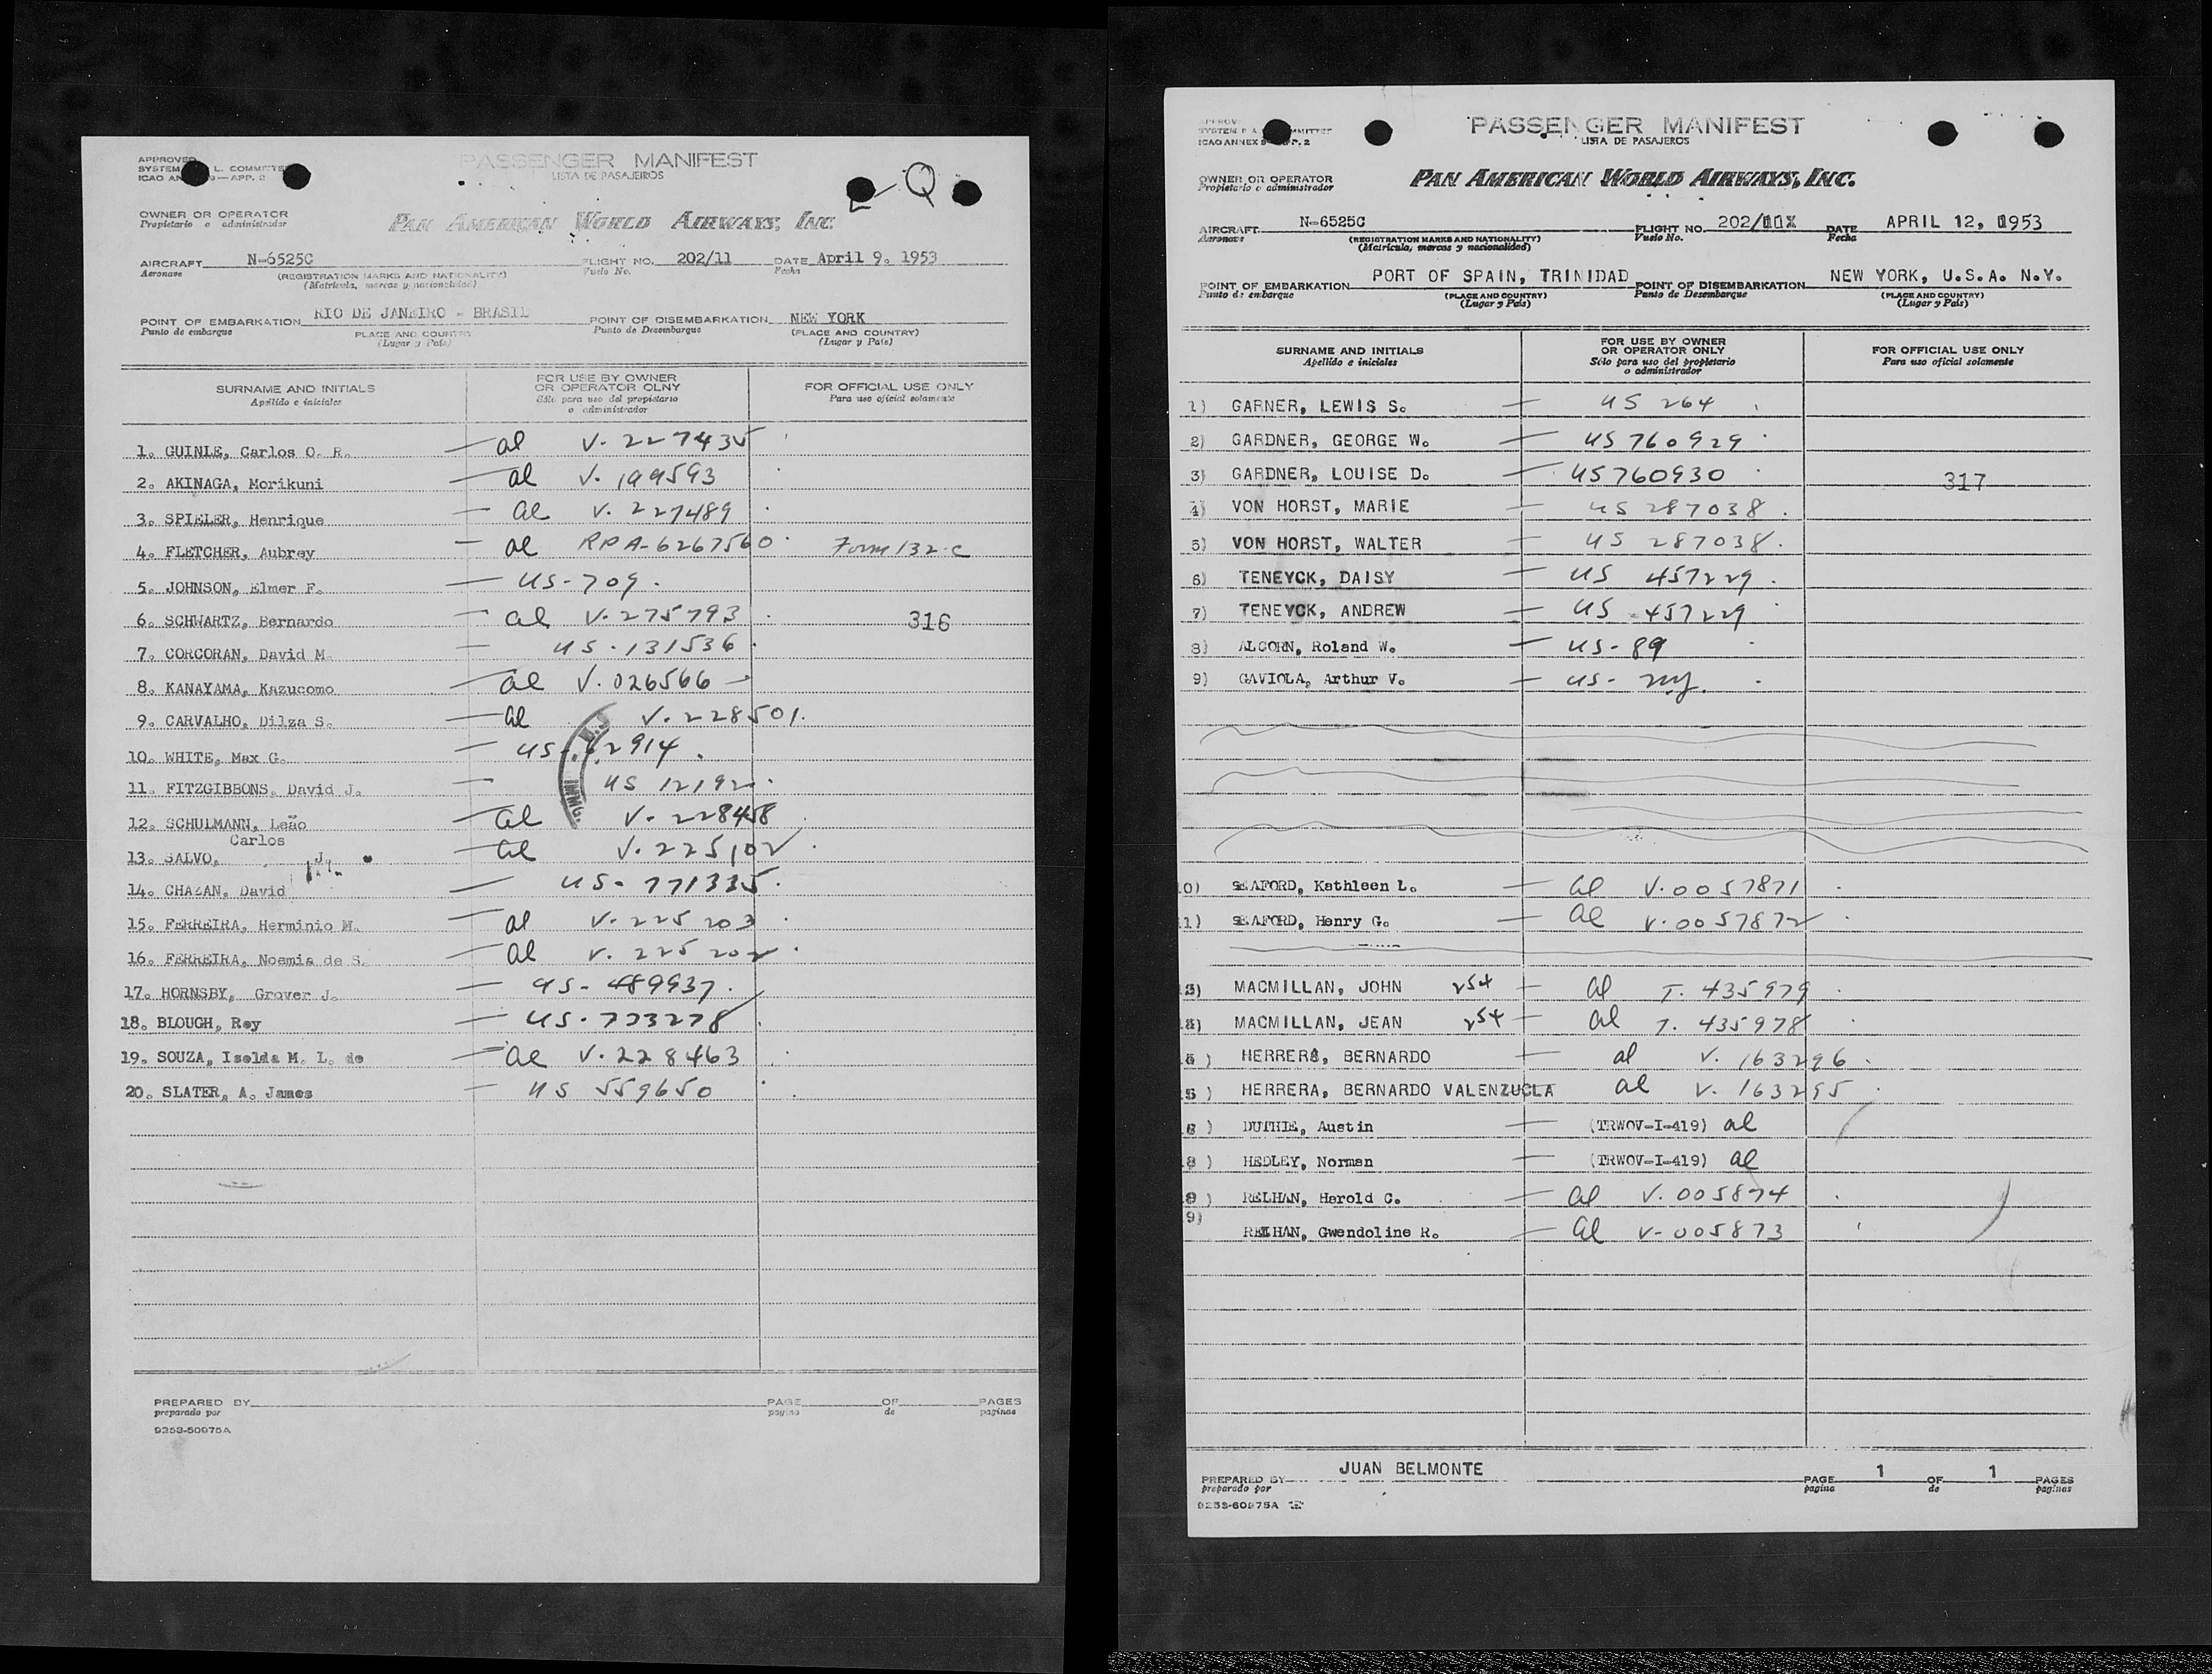 APPROVED
SYSTEM L. COMMITTE
ICAO AN 9—APP. 2
PASSENGER MANIFEST
LISTA DE PASAJEIROS
Q
OWNER OR OPERATOR
Propietario o administrador
PAN AMERICAN WORLD AIRWAYS, INC.
AIRCRAFT N-6525C FLIGHT NO. 202/11 DATE April 9. 1953
Aeronave (REGISTRATION MARKS AND NATIONALITY) Vuelo No. Fecha
(Matrícula, marcas y nacionalidad)
POINT OF EMBARKATION RIO DE JANEIRO - BRASIL POINT OF DISEMBARKATION NEW YORK
Punto de embarque PLACE AND COUNTRY Punto de Desembarque (PLACE AND COUNTRY)
(Lugar y País) (Lugar y País)
SURNAME AND INITIALS
Apellido e iniciales
FOR USE BY OWNER
OR OPERATOR OLNY
Sólo para uso del propietario
o administrador
FOR OFFICIAL USE ONLY
Para uso oficial solamente
1. GUINLE, Carlos O. R. — al V. 227435
2. AKINAGA, Morikuni — al V. 199593
3. SPIELER, Henrique — al V. 227489
4. FLETCHER, Aubrey — al RPA-6267560 Form 132-C
5. JOHNSON, Elmer F. — US-709.
6. SCHWARTZ, Bernardo — al V. 275793 316
7. CORCORAN, David M. — US.131536
8. KANAYAMA, Kazucomo — al V.026566
9. CARVALHO, Dilza S. — al V.228501.
10. WHITE, Max G. — US- 62914
11. FITZGIBBONS, David J. — US 12192
IMMG.
12. SCHULMANN, Leão — al V. 228458
Carlos
13. SALVO, J. — al V. 225102
14. CHAZAN, David — US- 771335.
15. FERREIRA, Herminio M. — al V. 225203
16. FERREIRA, Noemia de S. — al V. 225202
17. HORNSBY, Grover J. — US- 489937.
18. BLOUGH, Roy — US. 733278
19. SOUZA, Iselda M. L. de — al V.228463
20. SLATER, A. James — US 559650
PREPARED BY PAGE OF PAGES
preparado por pagina de paginas
9253-60975A
SYSTEM F A MMITTEE
ICAO ANNEX 9 P. 2
PASSENGER MANIFEST
LISTA DE PASAJEROS
OWNER OR OPERATOR
Propietario o administrador
PAN AMERICAN WORLD AIRWAYS, INC.
AIRCRAFT N-6525C FLIGHT NO. 202/11X DATE APRIL 12, 1953
Aeronave (REGISTRATION MARKS AND NATIONALITY) Vuelo No. Fecha
(Matrícula, marcas y nacionalidad)
POINT OF EMBARKATION PORT OF SPAIN, TRINIDAD POINT OF DISEMBARKATION NEW YORK, U.S.A. N.Y.
Punto de embarque (PLACE AND COUNTRY) Punto de Desembarque (PLACE AND COUNTRY)
(Lugar y País) (Lugar y País)
SURNAME AND INITIALS
Apellido e iniciales
FOR USE BY OWNER
OR OPERATOR ONLY
Sólo para uso del propietario
o administrador
FOR OFFICIAL USE ONLY
Para uso oficial solamente
1) GARNER, LEWIS S. — US 264
2) GARDNER, GEORGE W. — US 760929
3) GARDNER, LOUISE D. — US760930 317
4) VON HORST, MARIE — US 287038
5) VON HORST, WALTER — US 287038.
6) TENEYCK, DAISY — US 457229
7) TENEYCK, ANDREW — US 457229
8) ALCORN, Roland W. — US-89
9) GAVIOLA, Arthur V. — US- ny.
0) SEAFORD, Kathleen L. — al V.0057871
1) SEAFORD, Henry G. — al V.0057872
3) MACMILLAN, JOHN 254 — al T. 435979
3) MACMILLAN, JEAN 254 — al T. 435978
5) HERRERA, BERNARDO — al V. 163296
5) HERRERA, BERNARDO VALENZUCLA al V. 163295
6) DUTHIE, Austin — (TRWOV-I-419) al
8) HEDLEY, Norman — (TRWOV-I-419) al
9) RELHAN, Harold C. — al V.005874
9) RELHAN, Gwendoline R. — al V-005873
PREPARED BY JUAN BELMONTE PAGE 1 OF 1 PAGES
preparado por pagina de paginas
9253-60975A